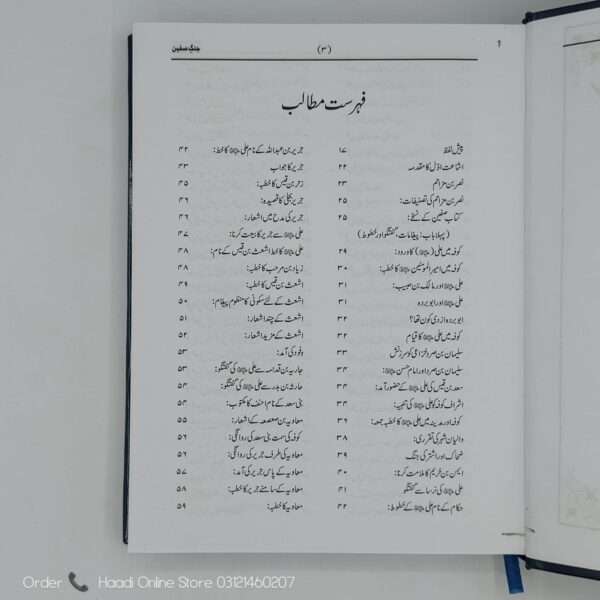 جنگِ صفین
(۳)
فہرست مطالب
پیش لفظ ۱۷
اشاعت اوّل کا مقدمہ ۲۲
نصر بن مزاحم ۲۳
نصر بن مزاحم کی تصنیفات: ۲۵
کتاب صفین کے نسخے: ۲۵
(پہلا باب: پیغامات، گفتگو اور خطوط)
کوفہ میں علی کا ورود: ۲۹
کوفہ میں امیر المومنین کا خطبہ: ۳۰
علی اور مالک بن حبیب: ۳۱
علی اور ابو بردہ ۳۱
ابو بردہ ازدی کون تھا؟ ۳۲
کوفہ میں علی کا قیام ۳۲
سلیمان بن صرد خزاعی کو سرزنش ۳۳
سلیمان بن صرد اور امام حسن: ۳۴
سعد بن قیس کی علی کے حضور آمد: ۳۴
اشراف کوفہ کو علی کی تنبیہ: ۳۴
کوفہ اور مدینہ میں علی کا خطبہ جمعہ: ۳۶
والیان شہر کی تقرری: ۳۸
ضحاک اور اشتر کی جنگ ۳۹
ایمن بن خریم کا ملامت کرنا: ۴۰
علی کی رؤسا سے گفتگو ۴۱
حکام کے نام علی کے خطوط: ۴۲
جریر بن عبداللہ کے نام علی کا خط: ۴۲
جریر کا جواب ۴۳
زحر بن قیس کا خطبہ: ۴۵
جریر بجلی کا قصیدہ: ۴۶
جریر کی مدح میں اشعار: ۴۶
علی سے جریر کا بیعت کرنا: ۴۷
علی کا خط اشعث بن قیس کے نام: ۴۸
زیاد بن مرحب کا خطبہ: ۴۸
اشعث بن قیس کا خطبہ: ۴۹
اشعث کے لئے سکونی کا منظوم پیغام: ۵۰
اشعث کے چند اشعار: ۵۱
اشعث کے مزید اشعار: ۵۲
وفود کی آمد: ۵۳
جاریہ بن قدامہ سے علی کی گفتگو: ۵۳
حارثہ بن بدر سے علی کی گفتگو: ۵۴
بنی سعد کے نام احنف کا مکتوب: ۵۴
معاویہ بن صعصعہ کے اشعار: ۵۵
کوفہ کی سمت بنی سعد کی روانگی: ۵۶
معاویہ کی طرف جریر کی روانگی: ۵۶
معاویہ کے پاس جریر کی آمد: ۵۷
معاویہ کے سامنے جریر کا خطبہ: ۵۸
معاویہ کا خطبہ: ۵۹
Order Haadi Online Store 03121460207